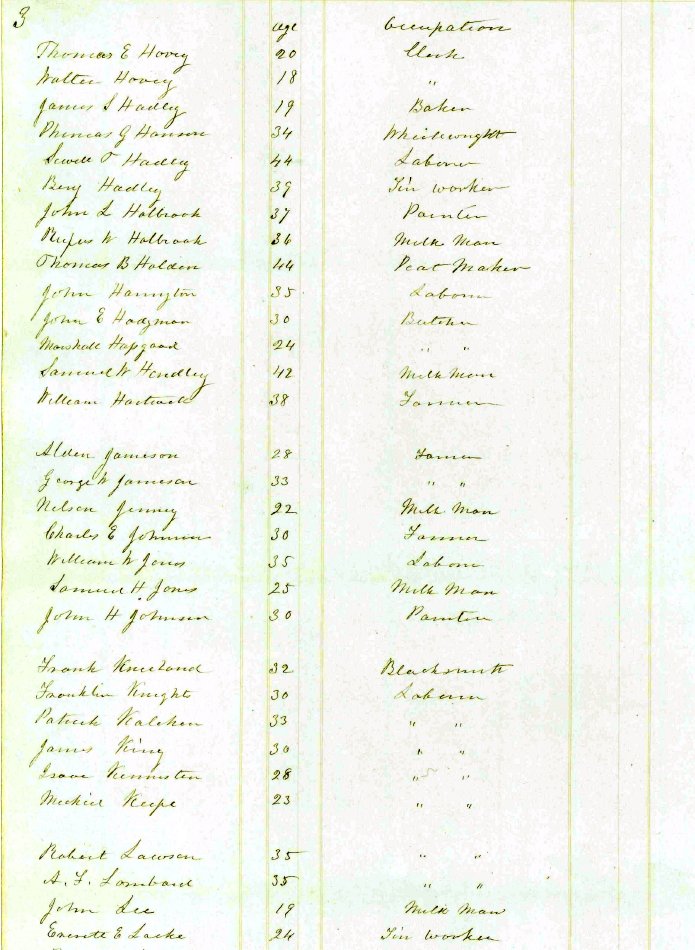 3
age Occupation
Thomas E Hovey 20 Clerk
Walter Hovey 18 "
James S Hadley 19 Baker
Phineas G Hanson 34 Wheelwright
Sewell T Hadley 44 Laborer
Benj Hadley 39 Tin worker
John L Holbrook 37 Painter
Rufus W Holbrook 36 Milk Man
Thomas B Holden 44 Peat Maker
John Harrington 35 Laborer
John E Hodgman 30 Butcher
Marshall Hapgood 24 " "
Samuel W Hendley 42 Milk Man
William Hartwell 38 Farmer
Alden Jameson 28 Farmer
George W Jameson 33 " "
Nelson Jenney 22 Milk Man
Charles E Johnson 30 Farmer
William W Jones 35 Laborer
Samuel H. Jones 25 Milk Man
John H Johnson 30 Painter
Frank Kneeland 32 Blacksmith
Franklin Knights 30 Laborer
Patrick 33 " "
James King 30 " "
Isaac Kenniston 28 " "
Michiel Keefe 23 " "
Robert Lawson 35 " "
A. F. Lombard 35 " "
John Lee 19 Milk Man
Everett E Locke 24 Tin worker